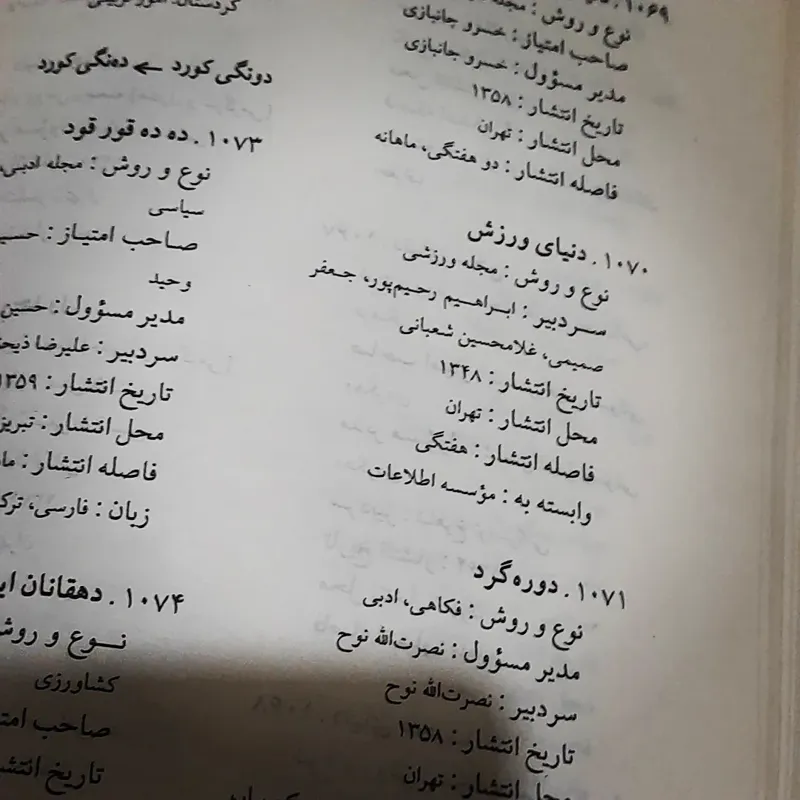 ۱۰۶۹ .
نوع و روش : مجله
صاحب امتیاز : خسرو جانبازی
مدیر مسؤول : خسرو جانبازی
تاریخ انتشار : ۱۳۵۸
محل انتشار : تهران
فاصله انتشار : دو هفتگی، ماهانه
۱۰۷۰ . دنیای ورزش
نوع و روش : مجله ورزشی
سردبیر : ابراهیم رحیم‌پور، جعفر
صمیمی، غلامحسین شعبانی
تاریخ انتشار : ۱۳۴۸
محل انتشار : تهران
فاصله انتشار : هفتگی
وابسته به : مؤسسه اطلاعات
۱۰۷۱ . دوره گرد
نوع و روش : فکاهی، ادبی
مدیر مسؤول : نصرت‌الله نوح
سردبیر : نصرت‌الله نوح
تاریخ انتشار : ۱۳۵۸
محل انتشار : تهران
کردستان،
دونگی کورد ← ده‌نگی کورد
۱۰۷۳ . ده ده قور قود
نوع و روش : مجله ادبی،
سیاسی
صاحب امتیاز :
وحید
مدیر مسؤول : حسین
سردبیر : علیرضا
تاریخ انتشار : ۱۳۵۹
محل انتشار : تبریز
فاصله انتشار :
زبان : فارسی،
۱۰۷۴ . دهقانان
نوع و روش
کشاورزی
صاحب
تاریخ